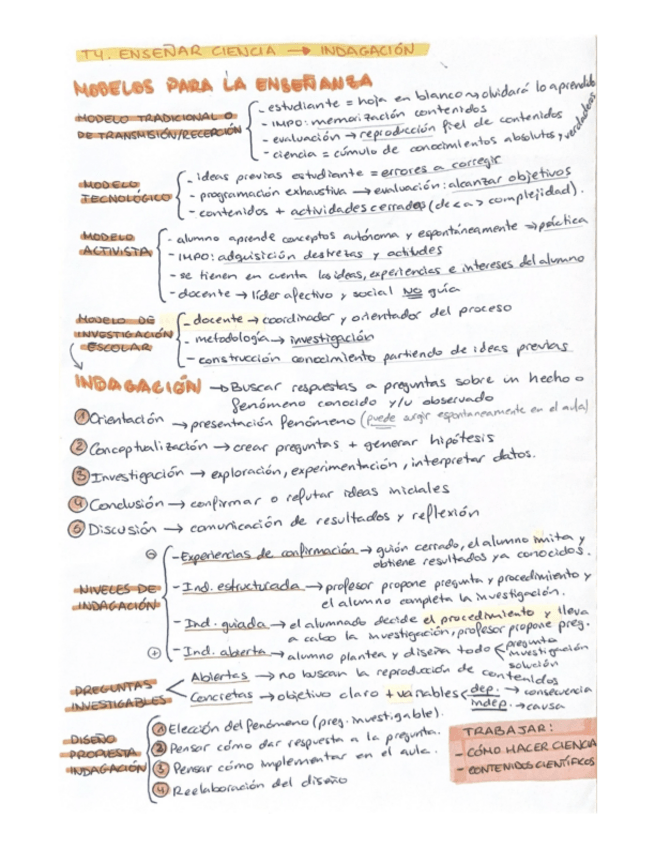 T4. ENSEÑAR CIENCIA → INDAGACIÓN
MODELOS PARA LA ENSEÑANZA
MODELO TRADICIONAL O
DE TRANSMISIÓN/RECEPCIÓN
- estudiante = hoja en blanco → olvidará lo aprendido
- IMPO: memorización contenidos
- evaluación → reproducción fiel de contenidos
- ciencia = cúmulo de conocimientos absolutos y verdaderos
MODELO
TECNOLÓGICO
- ideas previas estudiante = errores a corregir
- programación exhaustiva → evaluación: alcanzar objetivos
- contenidos + actividades cerradas (de < a > complejidad).
MODELO
ACTIVISTA
- alumno aprende conceptos autónoma y espontáneamente → práctica
- IMPO: adquisición destrezas y actitudes
- se tienen en cuenta las ideas, experiencias e intereses del alumno
- docente → líder afectivo y social NO guía
MODELO DE
INVESTIGACIÓN
ESCOLAR
- docente → coordinador y orientador del proceso
- metodología → investigación
- construcción conocimiento partiendo de ideas previas
INDAGACIÓN → Buscar respuestas a preguntas sobre un hecho o
fenómeno conocido y/u observado
1 Orientación → presentación fenómeno (puede surgir espontáneamente en el aula)
2 Conceptualización → crear preguntas + generar hipótesis
3 Investigación → exploración, experimentación, interpretar datos.
4 Conclusión → confirmar o refutar ideas iniciales
5 Discusión → comunicación de resultados y reflexión
NIVELES DE
INDAGACIÓN
⊖ - Experiencias de confirmación → guión cerrado, el alumno imita y
obtiene resultados ya conocidos.
- Ind. estructurada → profesor propone pregunta y procedimiento y
el alumno completa la investigación.
- Ind. guiada → el alumnado decide el procedimiento y lleva
a cabo la investigación, profesor propone preg.
⊕ - Ind. abierta → alumno plantea y diseña todo < pregunta
investigación
solución
PREGUNTAS
INVESTIGABLES
Abiertas → no buscan la reproducción de contenidos
Concretas → objetivo claro + variables < dep. → consecuencia
indep. → causa
DISEÑO
PROPUESTA
INDAGACIÓN
1 Elección del fenómeno (preg. investigable).
2 Pensar cómo dar respuesta a la pregunta.
3 Pensar cómo implementar en el aula.
4 Reelaboración del diseño
TRABAJAR:
- CÓMO HACER CIENCIA
- CONTENIDOS CIENTÍFICOS